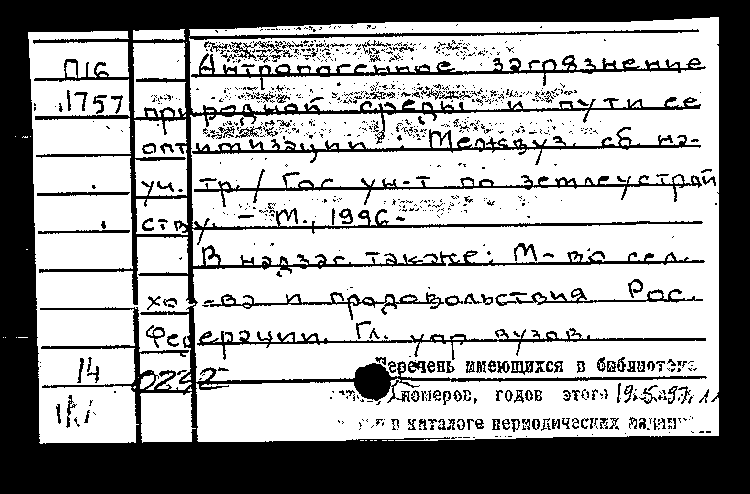 П16 Антропогенное загрязнение
1757 природной среды и пути ее
оптимизации : Межвуз. сб. на-
уч. тр. / Гос ун-т по землеустрой
ству. - М., 1996-
В надзаг. также: М-во сел.
хоз-ва и продовольствия Рос.
Федерации. Гл. упр вузов.
14 Перечень имеющихся в библиотеке
0292
номеров, годов этого
в каталоге периодических издан